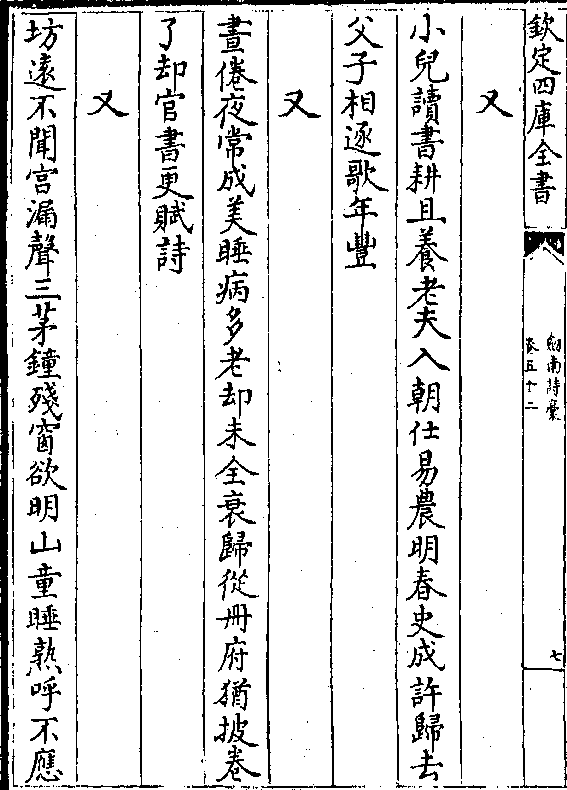 欽定四庫全書
劒南詩稾
卷五十二
七
又
小兒讀書耕且養老夫入朝仕易農明春史成許歸去
父子相逐歌年豐
又
晝倦夜常成美睡病多老却未全衰歸從册府猶披卷
了却官書更賦詩
又
坊逺不聞宫漏聲三茅鐘殘窗欲明山童睡熟呼不應